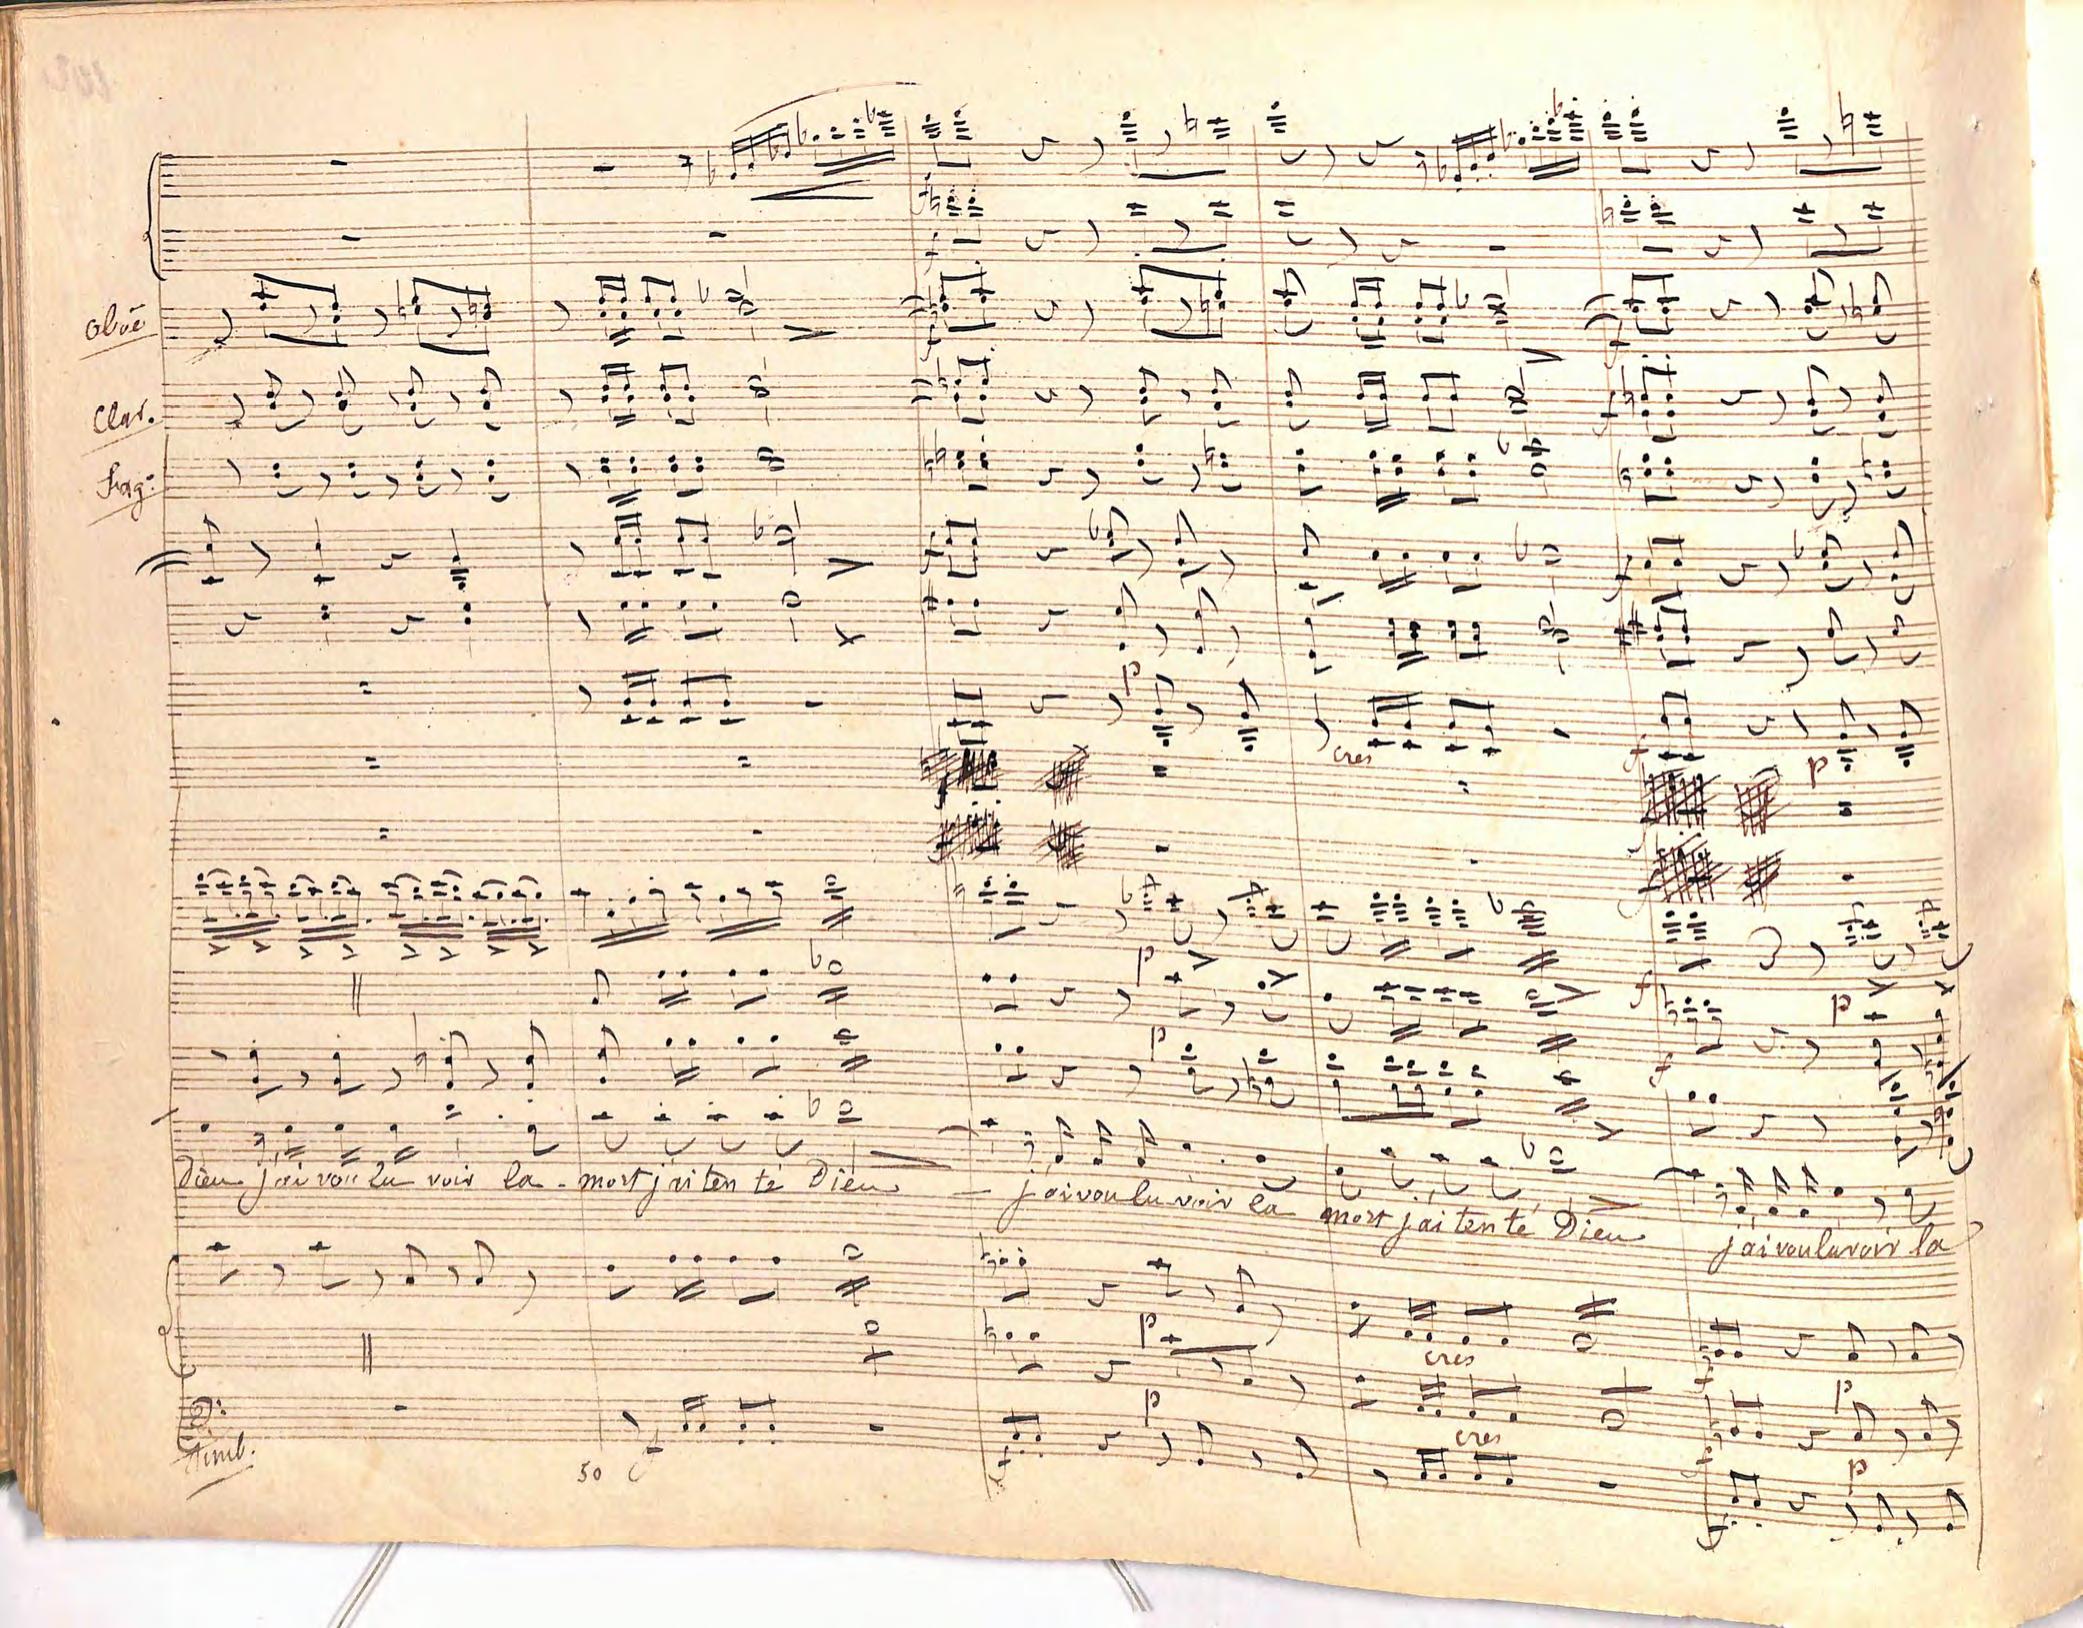 oboë
Clar.
Fag:
f
f
f
f
f
p
cres
f
p
p
f
p
p
f
Dieu j'ai voulu voir la mort j'ai tenté Dieu j'ai voulu voir la mort j'ai tenté Dieu j'ai voulu voir la
p
cres
f
p
cres
p
Timb.
50
f
f
p
f